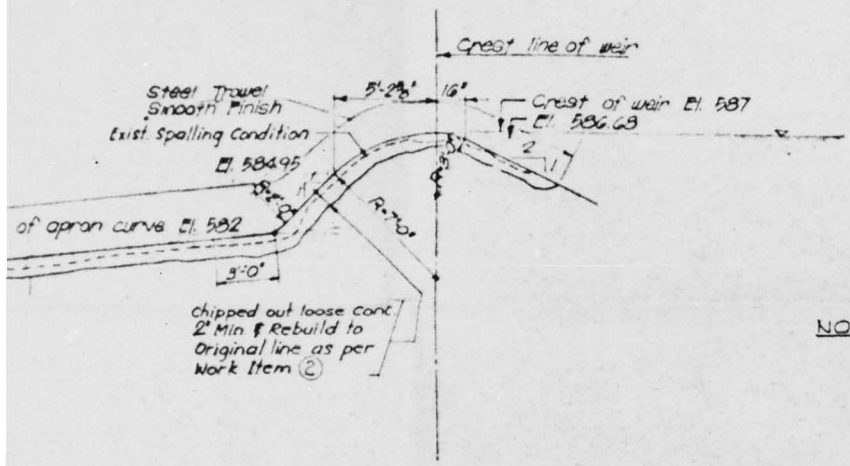 Crest line of weir
Steel Trowel
Smooth Finish
5'-2⅜"
16"
Crest of weir El. 587
El. 586.68
Exist. Spalling Condition
2
1
El. 584.95
R=7'-0"
of apron curve El. 582
3'-0"
Chipped out loose conc.
2" Min. & Rebuild to
Original line as per
Work Item ②
NO